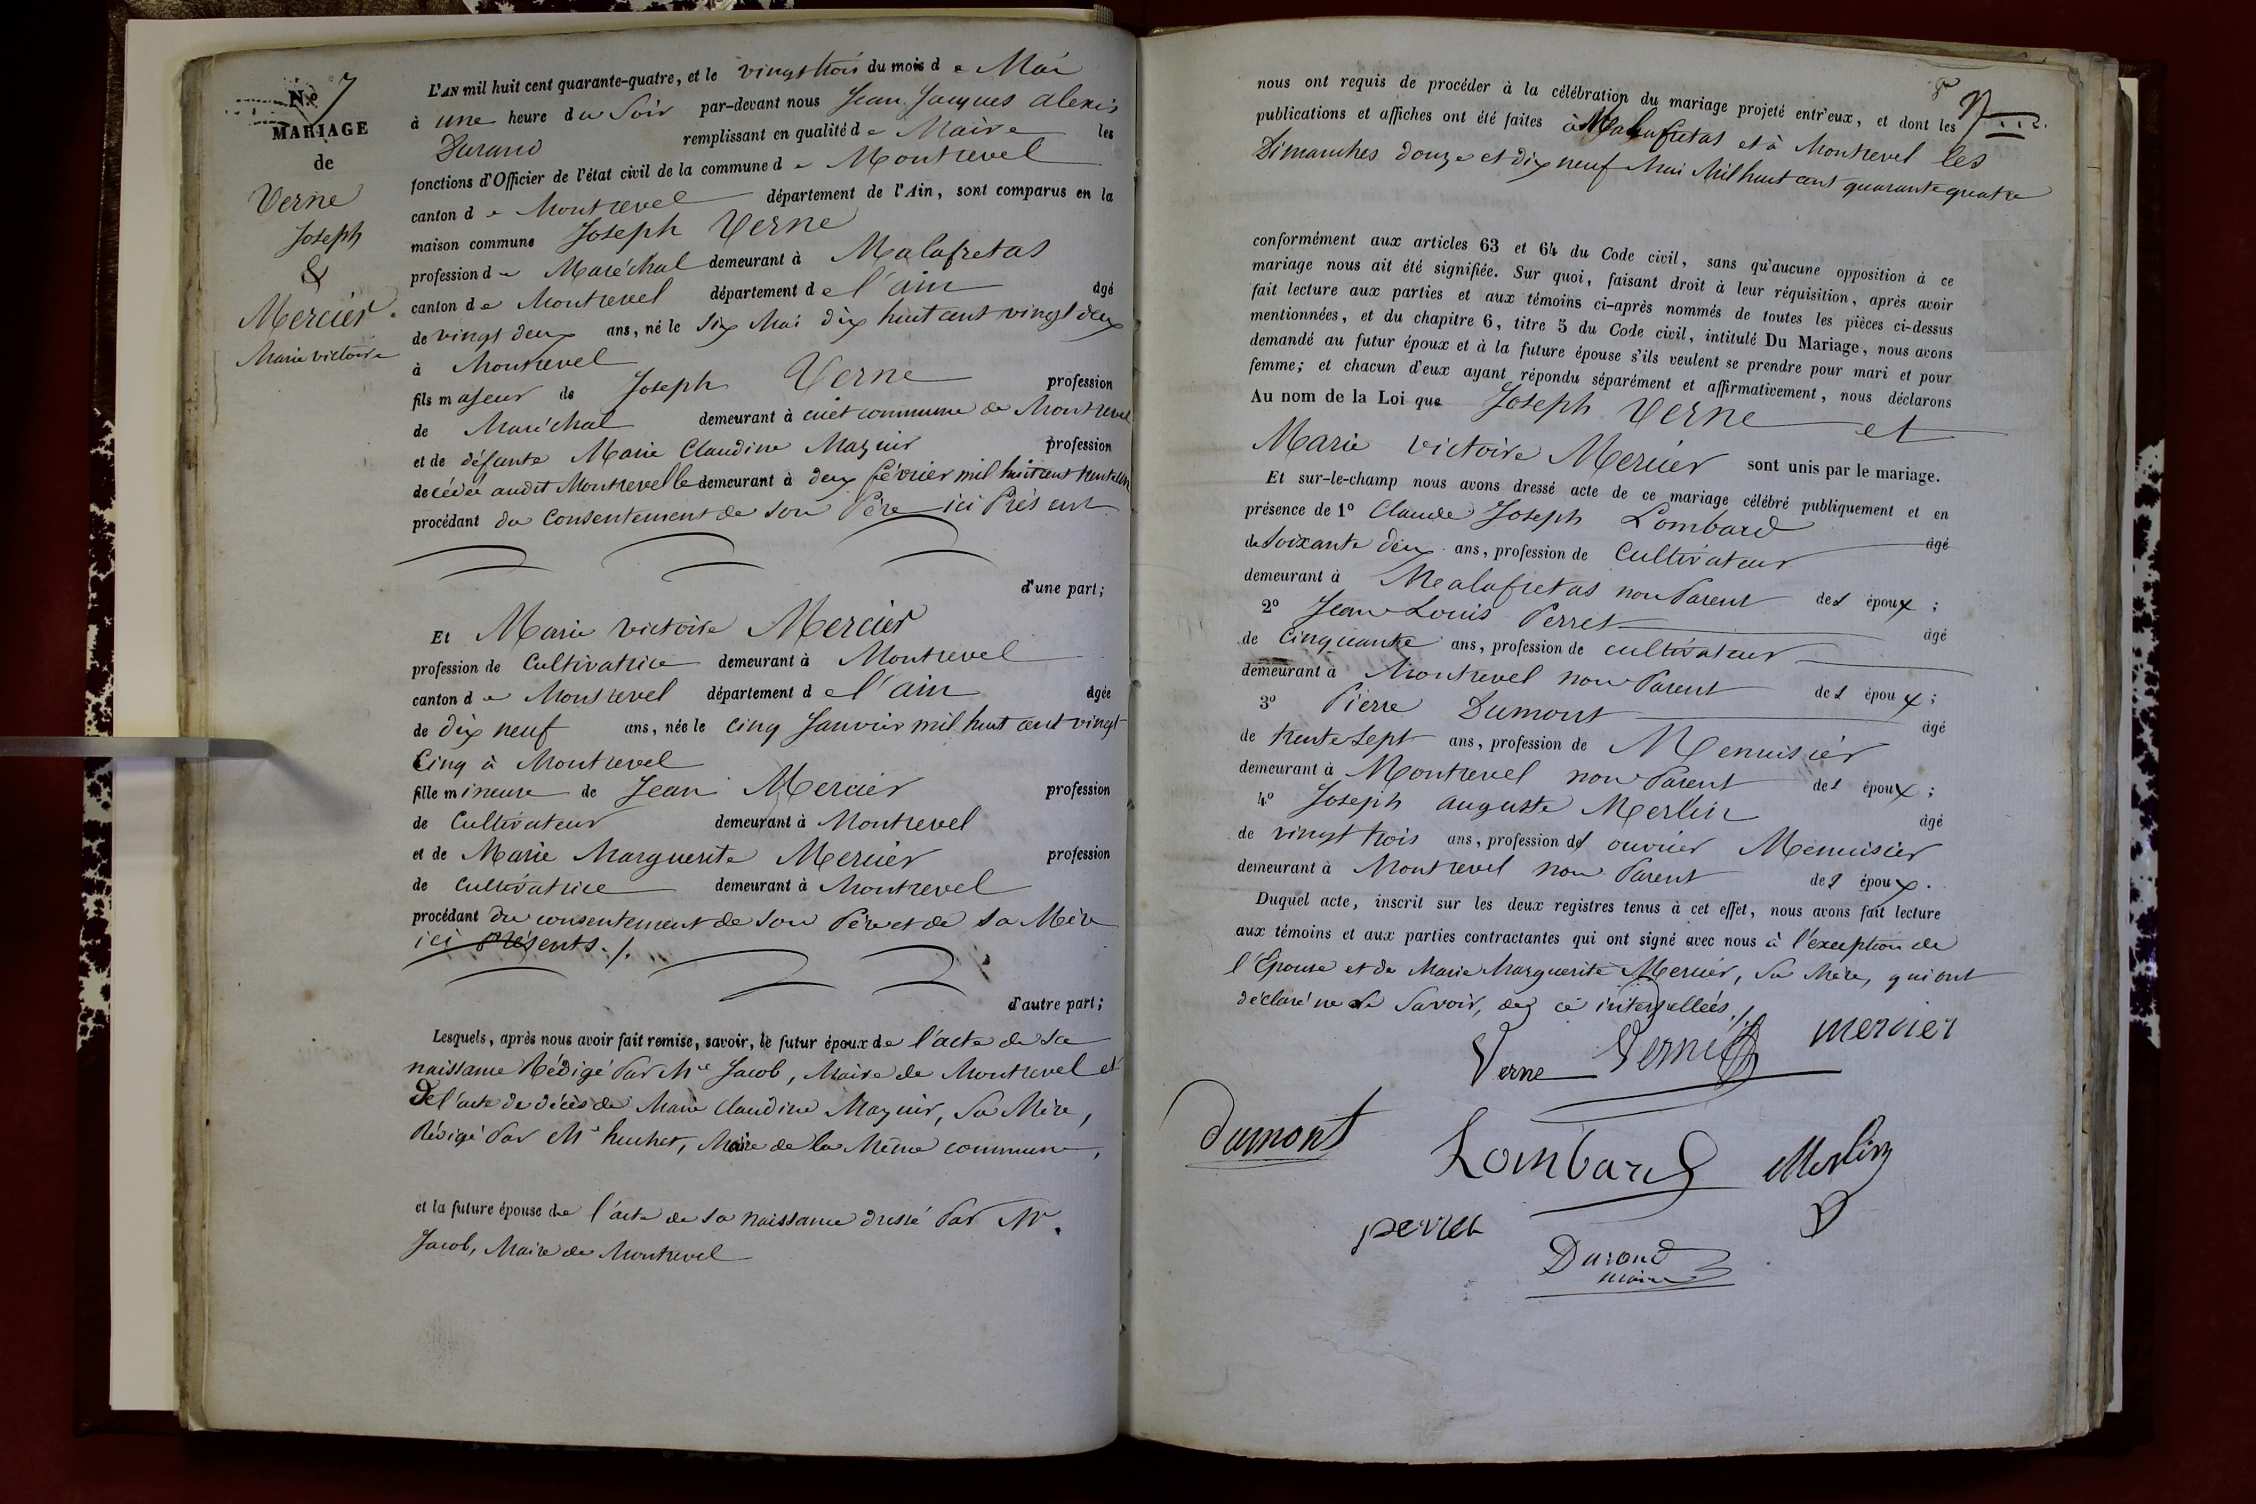 N.º 7
MARIAGE
de
Verne
Joseph
&
Mercier
Marie victoire
L'AN mil huit cent quarante-quatre, et le vingt trois du mois de Mai
à une heure du Soir par-devant nous Jean Jacques alexis
Durand remplissant en qualité de Maire les
fonctions d'Officier de l'état civil de la commune de Montrevel
canton de Montrevel département de l'Ain, sont comparus en la
maison commune Joseph Verne
profession de Maréchal demeurant à Malafretas
canton de Montrevel département de l'ain âgé
de vingt deux ans, né le Six Mai dix huit cent vingt deux
à Montrevel
fils majeur de Joseph Verne profession
de Maréchal demeurant à cuet commune de Montrevel
et de défunte Marie Claudine Mazuir profession
decédée audit Montrevel le demeurant à deux février mil huit cent trente un
procédant du Consentement de son Père ici Présent
d'une part;
Et Marie Victoire Mercier
profession de Cultivatrice demeurant à Montrevel
canton de Montrevel département de l'ain âgée
de dix neuf ans, née le Cinq Janvier mil huit cent vingt
Cinq à Montrevel
fille mineure de Jean Mercier profession
de Cultivateur demeurant à Montrevel
et de Marie Marguerite Mercier profession
de Cultivatrice demeurant à Montrevel
procédant du consentement de son Père et de sa Mère
ici Présents./.
d'autre part;
Lesquels, après nous avoir fait remise, savoir, le futur époux de l'acte de sa
naissance Rédigé Par Mr Jacob, Maire de Montrevel et
De l'acte de décès de Marie Claudine Mazuir, Sa Mère,
Rédigé Par Mr huchet, Maire de la Même commune,
et la future épouse de l'acte de sa naissance dressé Par Mr
Jacob, Maire de Montrevel
nous ont requis de procéder à la célébration du mariage projeté entr'eux, et dont les
publications et affiches ont été faites à Malafretas et à Montrevel les
Dimanches douze et dix neuf Mai Mil huit cent quarante quatre
conformément aux articles 63 et 64 du Code civil, sans qu'aucune opposition à ce
mariage nous ait été signifiée. Sur quoi, faisant droit à leur réquisition, après avoir
fait lecture aux parties et aux témoins ci-après nommés de toutes les pièces ci-dessus
mentionnées, et du chapitre 6, titre 5 du Code civil, intitulé Du Mariage, nous avons
demandé au futur époux et à la future épouse s'ils veulent se prendre pour mari et pour
femme; et chacun d'eux ayant répondu séparément et affirmativement, nous déclarons
Au nom de la Loi que Joseph Verne et
Marie Victoire Mercier sont unis par le mariage.
Et sur-le-champ nous avons dressé acte de ce mariage célébré publiquement et en
présence de 1º Claude Joseph Lombard âgé
de Soixante deux ans, profession de Cultivateur
demeurant à Malafretas non Parent des époux;
2º Jean Louis Perret âgé
de Cinquante ans, profession de cultivateur
demeurant à Montrevel non Parent des époux;
3º Pierre Dumont âgé
de trente sept ans, profession de Menuisier
demeurant à Montrevel non Parent des époux;
4º Joseph auguste Merlin âgé
de vingt trois ans, profession d' ouvrier Menuisier
demeurant à Montrevel non Parent des époux.
Duquel acte, inscrit sur les deux registres tenus à cet effet, nous avons fait lecture
aux témoins et aux parties contractantes qui ont signé avec nous à l'exception de
l'Epouse et de Marie Marguerite Mercier, sa Mère, qui ont
déclaré ne le Savoir, de ce interpellées./.
Verne Verne mercier
dumont Lombard Merlin
perret
Durand
maire